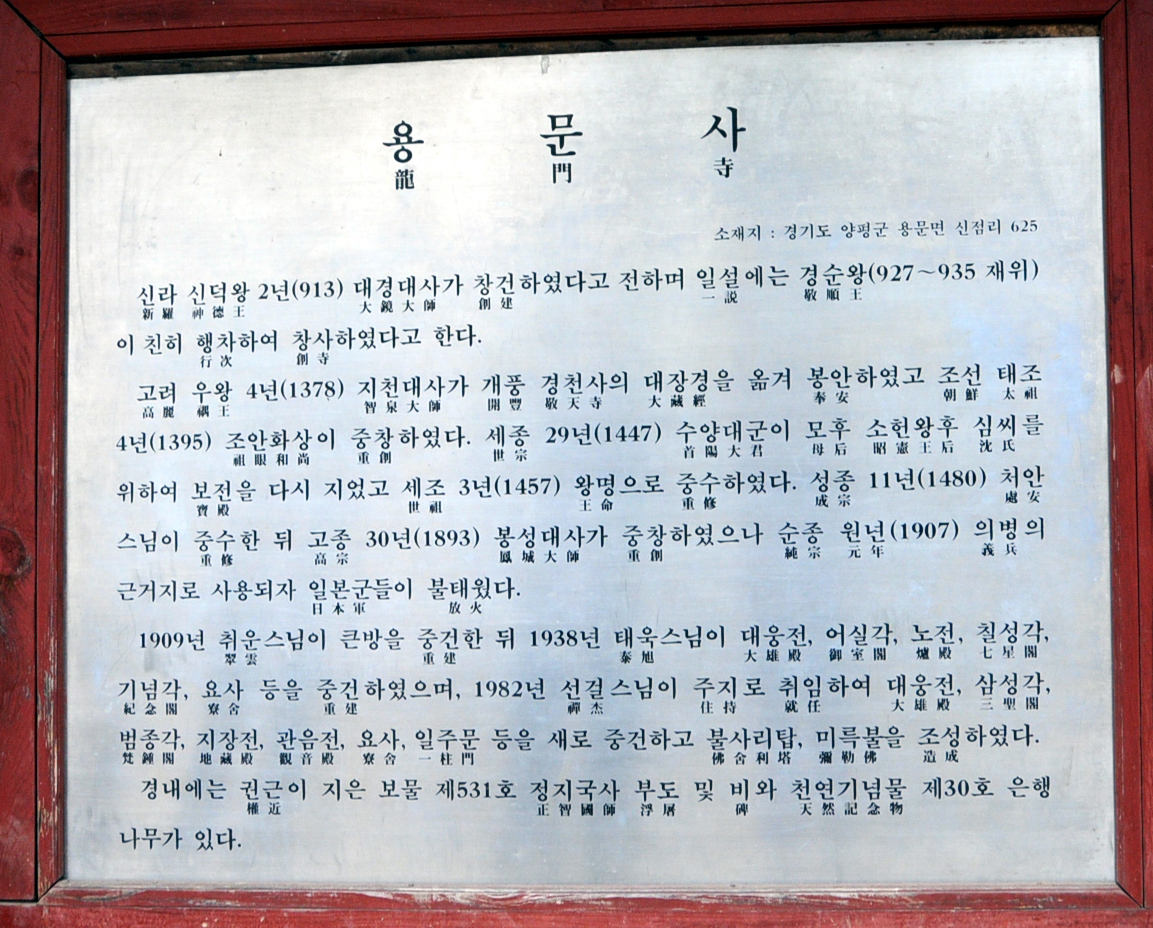 용 문 사
龍 門 寺
소재지 : 경기도 양평군 용문면 신점리 625
신라 신덕왕 2년(913) 대경대사가 창건하였다고 전하며 일설에는 경순왕(927~935 재위)
新羅 神德王 大鏡大師 創建 一説 敬順王
이 친히 행차하여 창사하였다고 한다.
行次 創寺
고려 우왕 4년(1378) 지천대사가 개풍 경천사의 대장경을 옮겨 봉안하였고 조선 태조
高麗 禑王 智泉大師 開豐 敬天寺 大藏經 奉安 朝鮮 太祖
4년(1395) 조안화상이 중창하였다. 세종 29년(1447) 수양대군이 모후 소헌왕후 심씨를
祖眼和尙 重創 世宗 首陽大君 母后 昭憲王后 沈氏
위하여 보전을 다시 지었고 세조 3년(1457) 왕명으로 중수하였다. 성종 11년(1480) 처안
寶殿 世祖 王命 重修 成宗 處安
스님이 중수한 뒤 고종 30년(1893) 봉성대사가 중창하였으나 순종 원년(1907) 의병의
重修 高宗 鳳城大師 重創 純宗 元年 義兵
근거지로 사용되자 일본군들이 불태웠다.
日本軍 放火
1909년 취운스님이 큰방을 중건한 뒤 1938년 태욱스님이 대웅전, 어실각, 노전, 칠성각,
翠雲 重建 泰旭 大雄殿 御室閣 爐殿 七星閣
기념각, 요사 등을 중건하였으며, 1982년 선걸스님이 주지로 취임하여 대웅전, 삼성각,
紀念閣 寮舍 重建 禪杰 住持 就任 大雄殿 三聖閣
범종각, 지장전, 관음전, 요사, 일주문 등을 새로 중건하고 불사리탑, 미륵불을 조성하였다.
梵鍾閣 地藏殿 觀音殿 寮舍 一柱門 佛舍利塔 彌勒佛 造成
경내에는 권근이 지은 보물 제531호 정지국사 부도 및 비와 천연기념물 제30호 은행
權近 正智國師 浮屠 碑 天然記念物
나무가 있다.